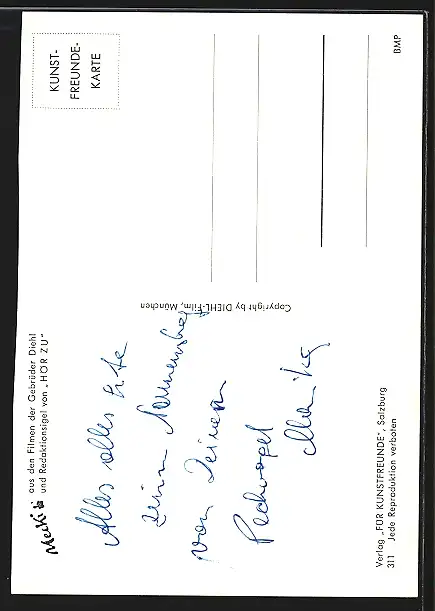 Mecki aus den Filmen der Gebrüder Diehl
und Redaktionsigel von „HÖR ZU"
Alles alles Gute
zum Namenstag
von Deinem
Pechvogel
KUNST-
FREUNDE-
KARTE
Copyright by DIEHL-Film, München
Verlag „FÜR KUNSTFREUNDE", Salzburg
311 Jede Reproduktion verboten
BMP